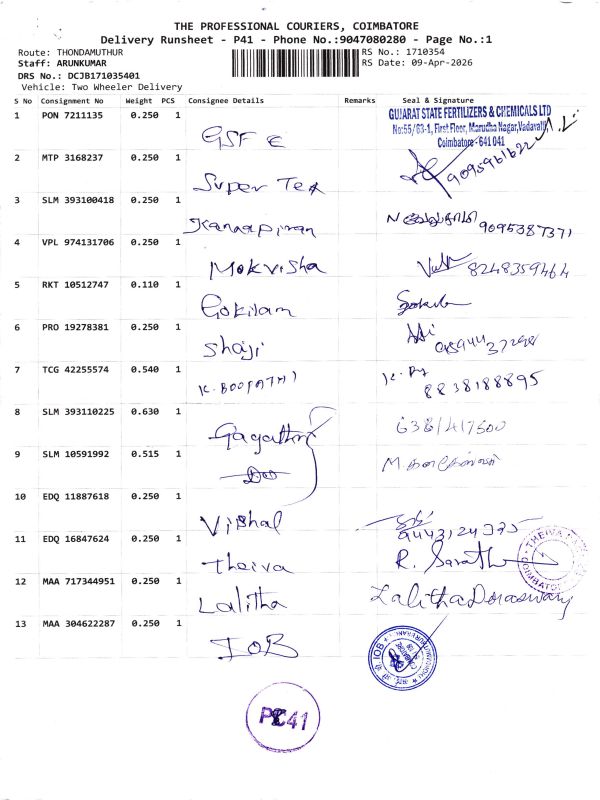 THE PROFESSIONAL COURIERS, COIMBATORE
Delivery Runsheet - P41 - Phone No.:9047080280 - Page No.:1
Route: THONDAMUTHUR RS No.: 1710354
Staff: ARUNKUMAR RS Date: 09-Apr-2026
DRS No.: DCJB171035401
Vehicle: Two Wheeler Delivery
S No Consignment No Weight PCS Consignee Details Remarks Seal & Signature
1 PON 7211135 0.250 1 GSFC
GUJARAT STATE FERTILIZERS & CHEMICALS LTD
No:55/63-1, First Floor, Marudha Nagar, Vadavalli,
Coimbatore - 641 041
2 MTP 3168237 0.250 1 Super Tex 9095961622
3 SLM 393100418 0.250 1 Kanaapiran 9095387371
4 VPL 974131706 0.250 1 Mokvisha 8248359464
5 RKT 10512747 0.110 1 Gokilam
6 PRO 19278381 0.250 1 Shaji
7 TCG 42255574 0.540 1 K. BOOPATHI 8838188895
8 SLM 393110225 0.630 1 Gayathri
9 SLM 10591992 0.515 1 Do
10 EDQ 11887618 0.250 1 Vishal
11 EDQ 16847624 0.250 1 Theiva R. Sarath
12 MAA 717344951 0.250 1 Lalitha Lalitha Doraswamy
13 MAA 304622287 0.250 1 IOB